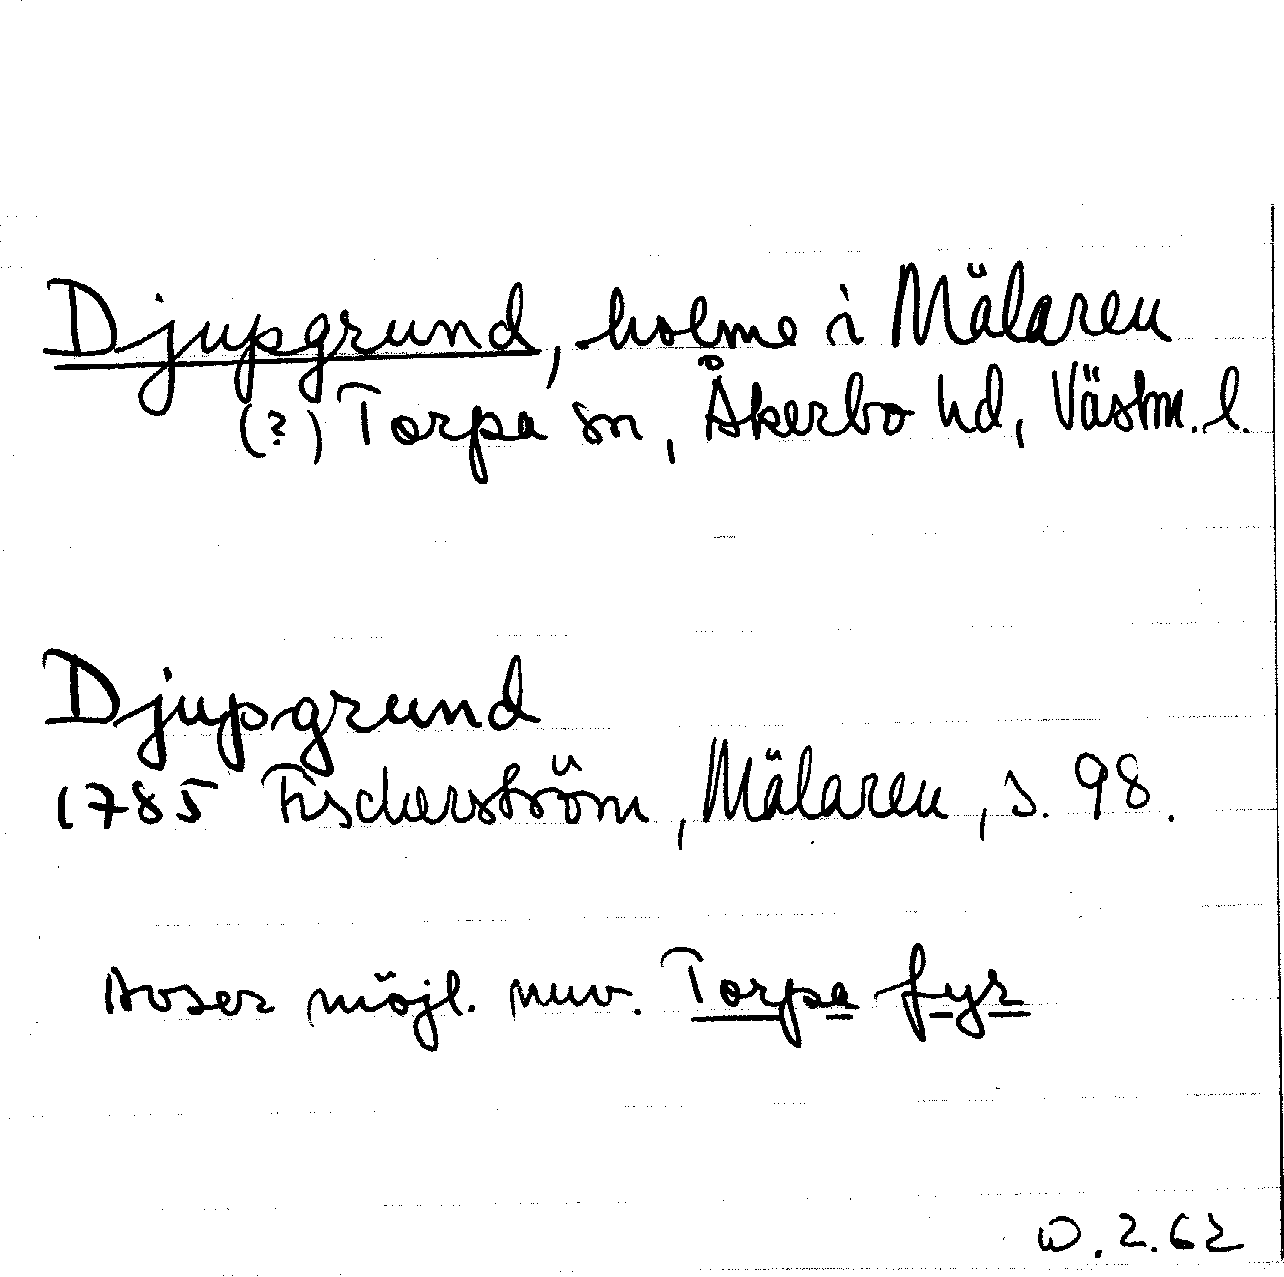 Djupgrund, holme i Mälaren
(?) Torpa sn, Åkerbo hd, Västm. l.
Djupgrund
1785 Fischerström, Mälaren, s. 98.
Avser möjl. nuv. Torpa fyr
2.62